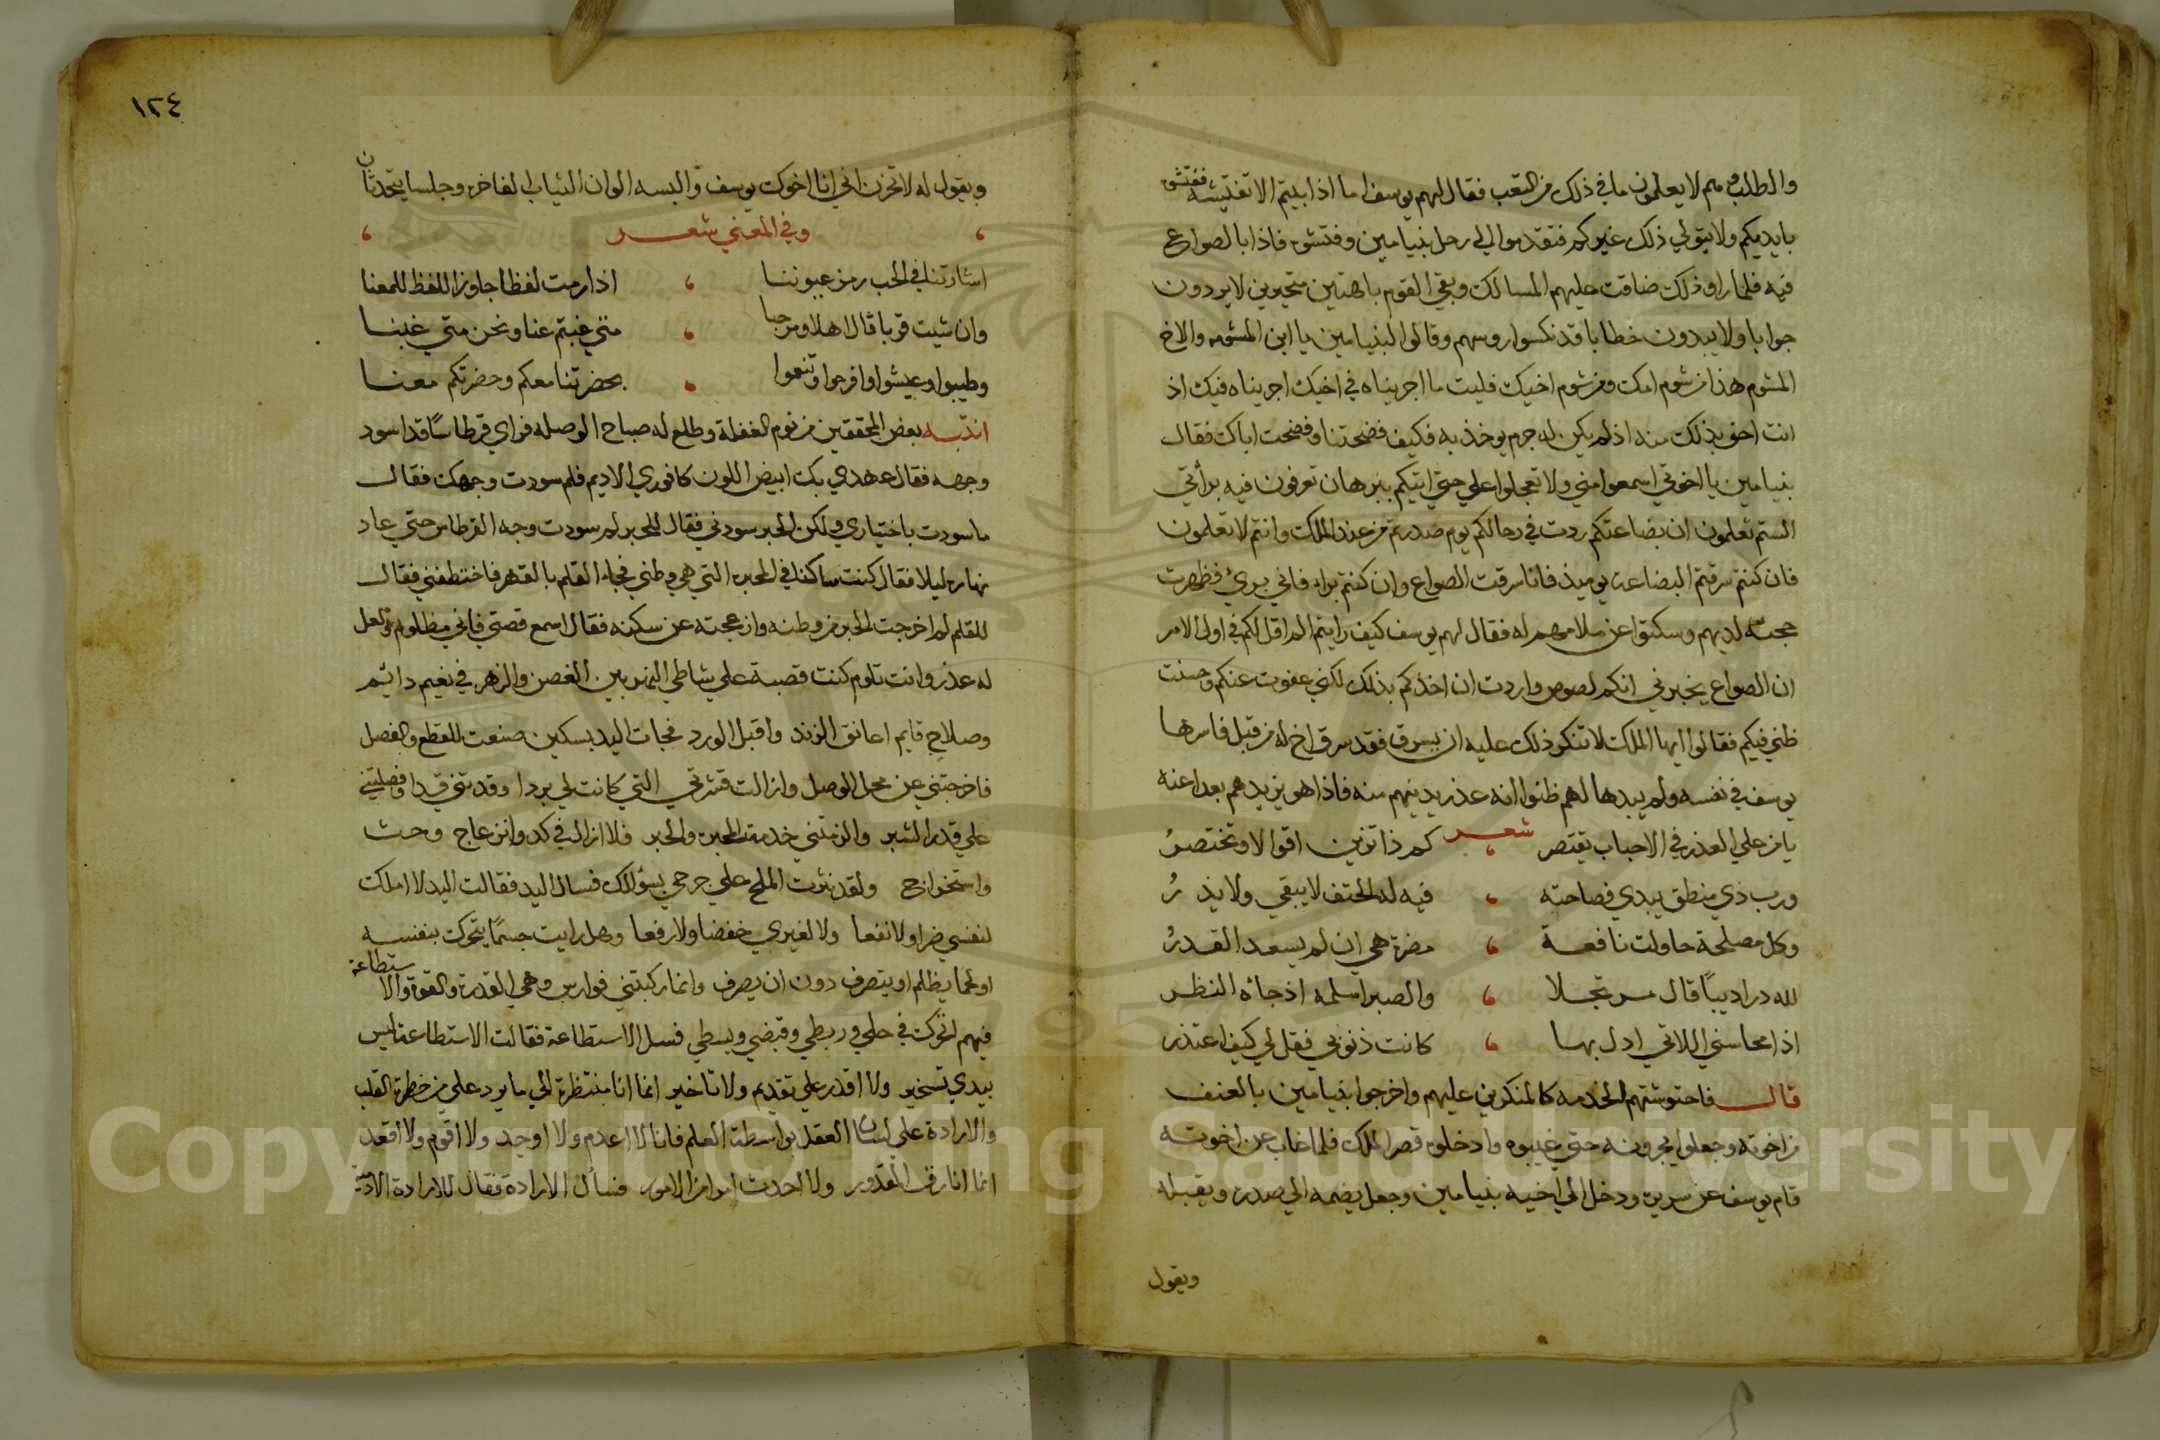 والطلب وهم لا يعلمون ما في ذلك من التعب فقال لهم يوسف اما اذا ابيتم الا تفتيشه ففتشوه
بايديكم ولا يتولي ذلك غيركم فتقدموا الي رحل بنيامين وفتشوه فاذا بالصواع
فيه فلما راوا ذلك ضاقت عليهم المسالك وبقي القوم باهتين متحيرين لا يردون
جوابا ولا يبدون خطابا قد نكسوا روسهم وقالوا لبنيامين يا ابن المشومه والاخ
المشوم هذا من شوم امك ومن شوم اخيك فليت ما اجريناه في اخيك اجريناه فيك اذ
انت احق بذلك منه اذ لم يكن له جرم يوخذ به فكيف فضحتنا وفضحت اباك فقال
بنيامين يا اخوتي اسمعوا مني ولا تعجلوا علي حتي اتيكم ببرهان تعرفون فيه برأتي
الستم تعلمون ان بضاعتكم ردت في رحالكم يوم صدرتم من عند الملك وانتم لا تعلمون
فان كنتم سرقتم البضاعة يوميذ فانا سرقت الصواع وان كنتم براه فاني بريء فظهرت
حجته لديهم وسكتوا عن ملامهم له فقال لهم يوسف كيف رايتم الم اقل لكم في اول الامر
ان الصواع يخبرني انكم لصوص واردت ان اخذكم بذلك لكني عفوت عنكم وحسنت
ظني فيكم فقالوا ايها الملك لا تنكر ذلك عليه ان يسرق فقد سرق اخ له من قبل فاسرها
يوسف في نفسه ولم يبدها لهم ظنوا انه عذر يدينهم منه فاذا هو يزيدهم بعدا عنه
شعر
يا من علي العذر في الاحباب يقتصر ، كم ذا تزين اقوالا وتختصرُ
ورب ذي منطق يبدي فصاحته ، فيه له الحتف لا يبقي ولا يذرُ
وكل مصلحة حاولت نافعة ، مضرة هي ان لم يسعد القدرُ
لله در اديبًا قال مرتجلا ، والصبر اسلمه اذ جاه النظر
اذا محاسني اللاتي ادل بها ، كانت ذنوبي فقل لي كيف اعتذر
قال فاحتوشتهم الخدمه كالمنكرين عليهم واخرجوا بنيامين بالعنف
من اخوته وجعلوا يجرونه حتي غيبوه وادخلوه قصر الملك فلما غاب عن اخوته
قام يوسف عن سريره ودخل الي اخيه بنيامين وجعل يضمه الي صدره ويقبله
ويقول
١٢٤
ويقول له لا تحزن اني انا اخوك يوسف والبسه الوان الثياب الفاخره وجلسا يتحدثان
، وفي المعني شعر ،
اشارتنا في الحب رمز عيوننا ، اذا رمت لفظا جاوز اللفظ للمعنا
وان شيت قربا قال اهلا ومرحبا ، متي غبتم عنا ونحن متي غبنا
وطيبوا وعيشوا وافرحوا وتنعموا ، بحضرتنا معكم وحضرتكم معنا
انتبه بعض المحققين من نوم الغفلة وطلع له صباح الوصله فراي قرطاسًا قد اسود
وجهه فقال عهدي بك ابيض اللون كافوري الاديم فلم سودت وجهك فقال
ما سودت باختياري ولكن الحبر سودني فقال للحبر لم سودت وجه القرطاس حتي عاد
نهاره ليلا فقال كنت ساكنا في المحبرة التي هي وطني فجاء القلم بالقهر فاختطفني فقال
للقلم لم اخرجت الحبر من وطنه وازعجته عن سكنه فقال اسمع قصتي فاني مظلوم ولعل
له عذر وانت تلوم كنت قصبة علي شاطي النهر بين الغصن والزهر في نعيم دائيم
وصلاح قايم اعانق الرند واقبل الورد فجات اليد بسكين صنعت للقطع والفصل
فاخرجتني عن محل الوصل وازالت قشرتي التي كانت لي بردا وقدتني قدا وفصلتني
علي قدر الشبر والزمتني خدمة المحبرة والحبر فلا ازال في كد وانزعاج وحث
واستخراج ولقد نثرت الملح علي جرحي بسؤالك فسال اليد فقالت اليد لا املك
لنفسي ضرا ولا نفعا ولا لغيري خفضا ولا رفعا وهل رايت جسمًا يتحرك بنفسه
او لحما يظلم او يتصرف دون ان يصرف وانما ركبتني فوارس وهي القدرة والقوة والاستطاعة
فبهم اتحرك في حلي وربطي وقبضي وبسطي فسل الاستطاعة فقالت الاستطاعة ليس
بيدي تسخير ولا اقدر علي تقديم ولا تاخير انما انا منتظرة الي ما يرد علي من خطرة القلب
والارادة علي لسان العقل بواسطة العلم فانا لا اعدم ولا اوجد ولا اقوم ولا اقعد
انما انا رق المقدور ولا احدث امرا من الامور فسأل الارادة فقال للارادة